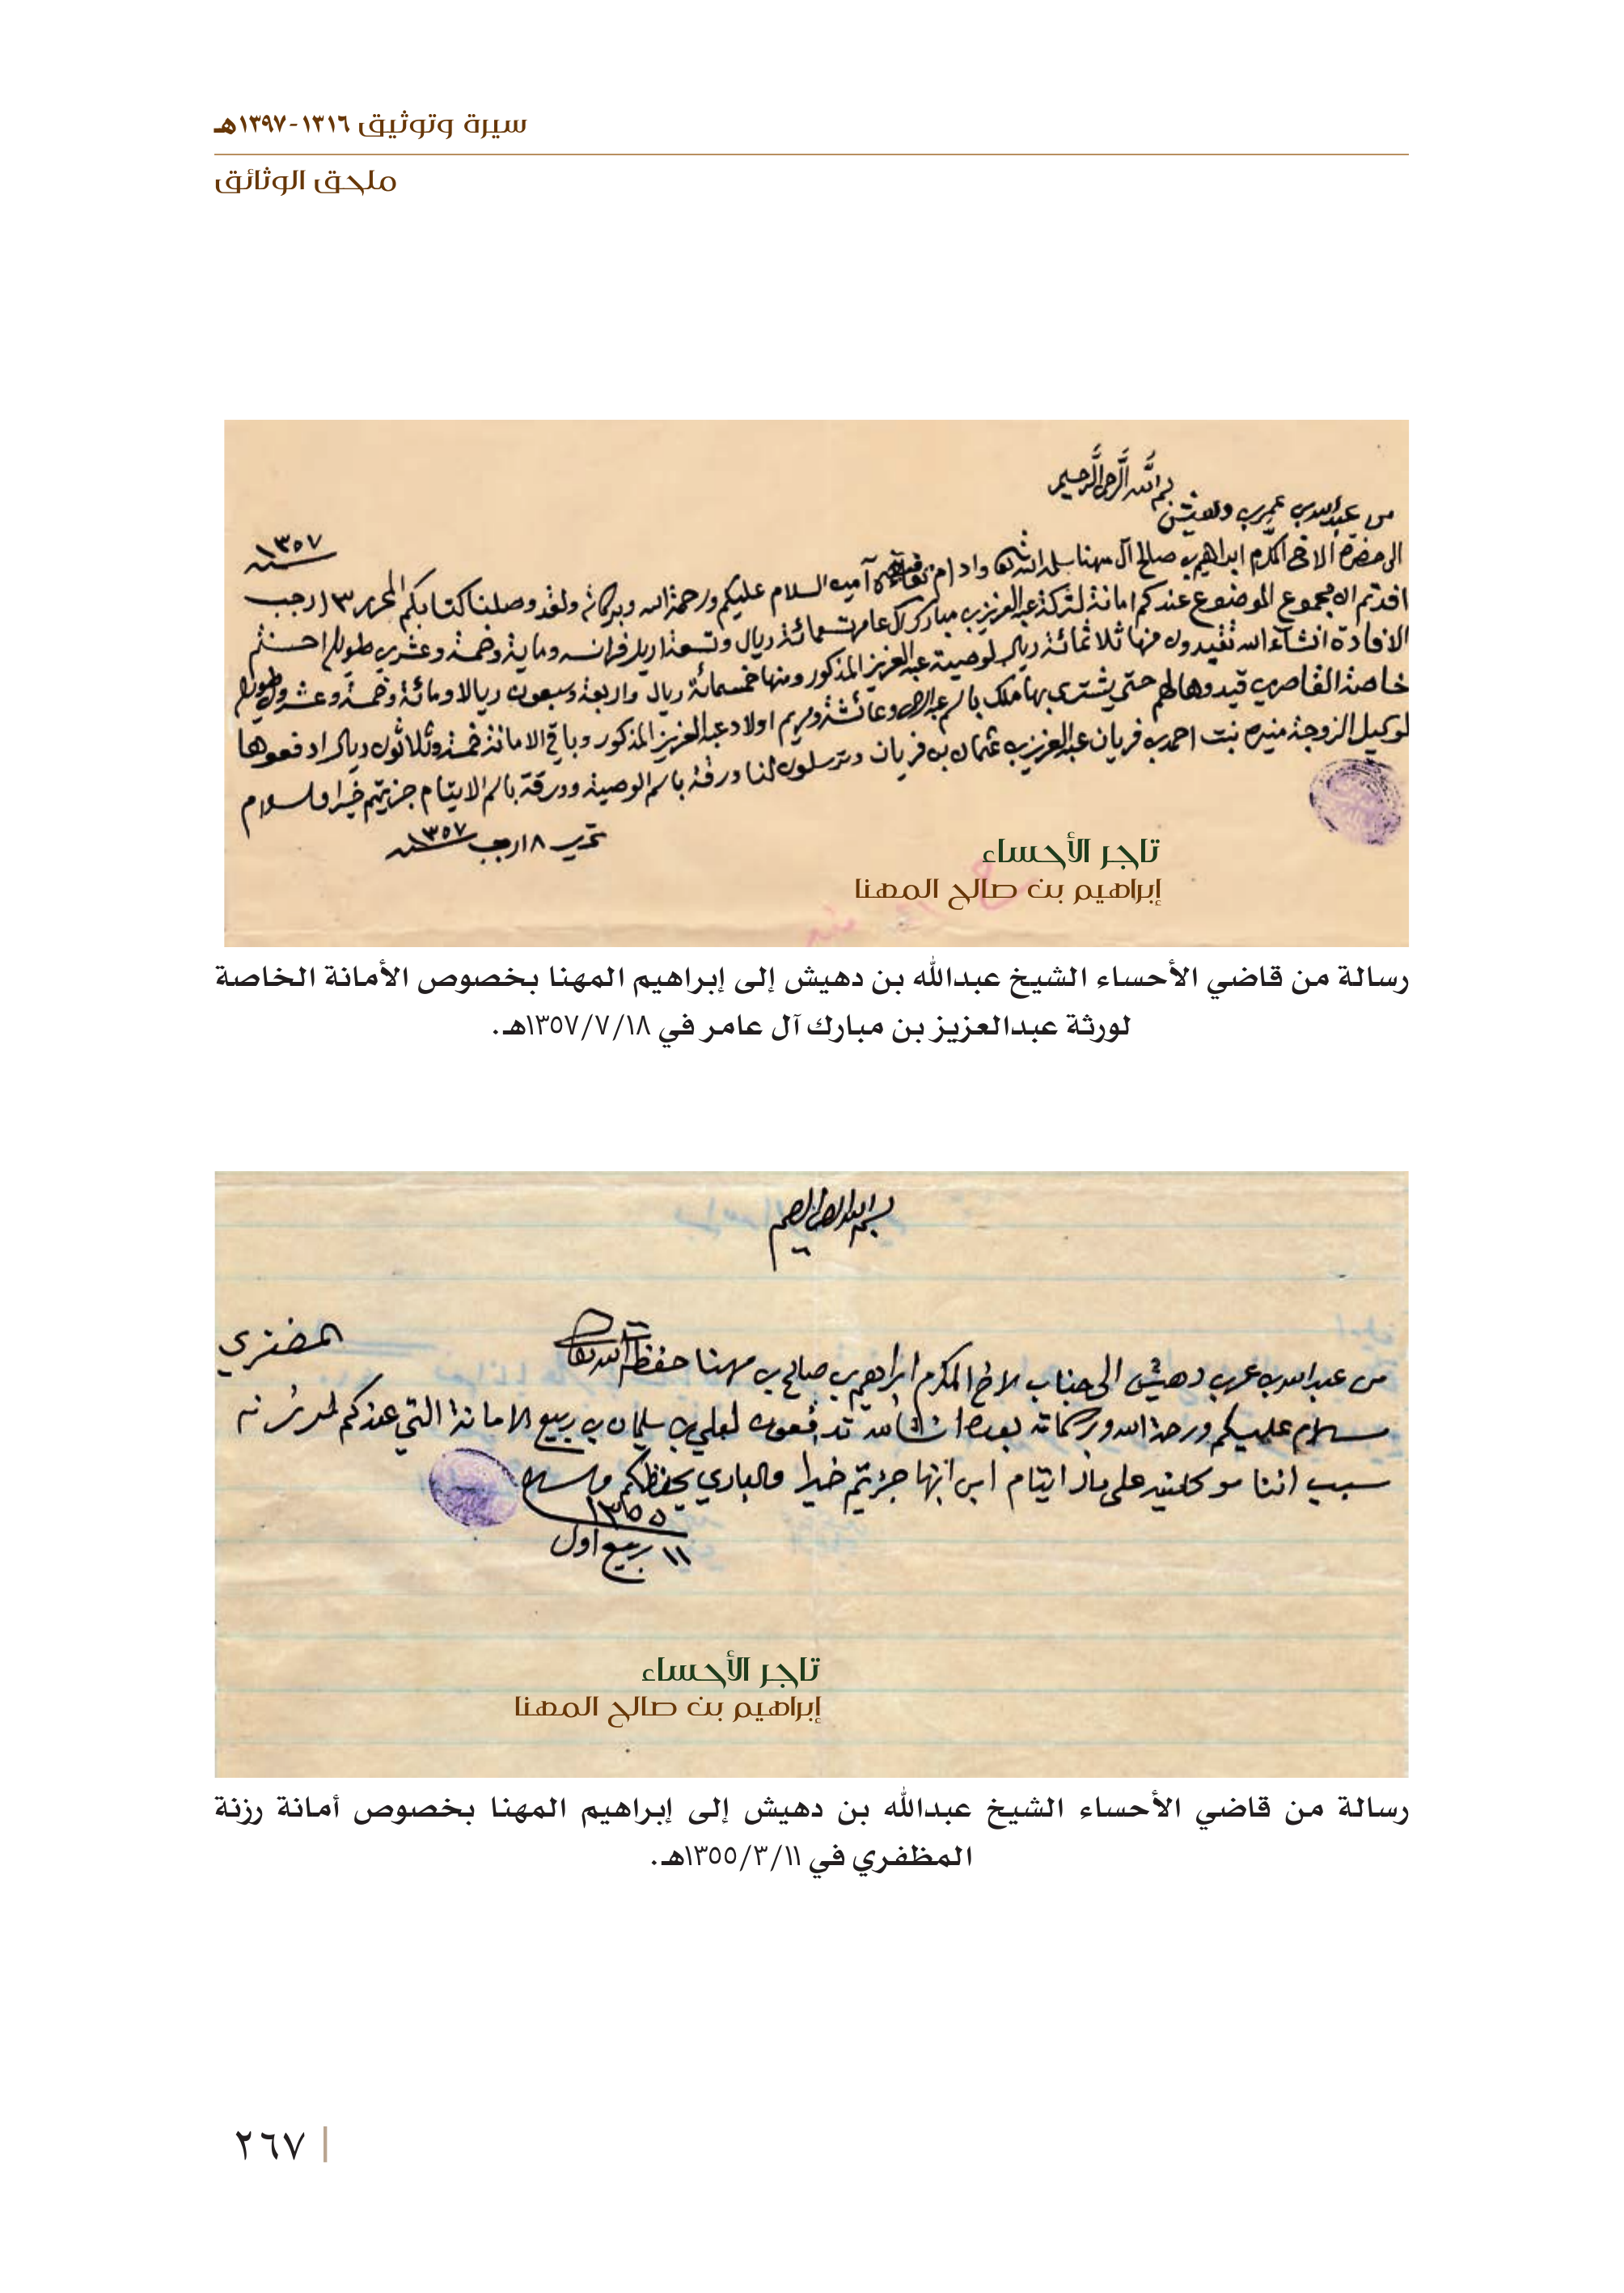 سيرة وتوثيق ١٣١٦-١٣٩٧هـ
ملحق الوثائق
بسم الله الرحمن الرحيم
من عبدالله بن عمر بن دهيش
الى حضرة الاخ المكرم ابراهيم بن صالح آل مهنا سلمه الله تعالى وادام بقاه آمين السلام عليكم ورحمة الله وبركاته ولقد وصلنا كتابكم المحرر ١٣ رجب سنة ١٣٥٧
افدتم ان مجموع الموضوع عندكم امانة لتركة عبدالعزيز بن مبارك آل عامر تسمائة ريال وتسعة اريل فرانسه وماية وخمسة وعشرين طويله احسنتم
الافادة انشاء الله تقيدون منها ثلاثمائة ريال لوصية عبدالعزيز المذكور ومنها خمسمائة ريال واربعة وسبعون ريالا ومائة وخمسة وعشرون طويله
خاصة القاصرين قيدوها لهم حتى يشترى بها ملك باسم وعائشة ومريم اولاد عبدالعزيز المذكور وباقي الامانة خمسة وثلاثون ريال ادفعوها
لوكيل الزوجة منيره بنت احمد بن فريان عبدالعزيز بن عثمان بن فريان وترسلون لنا ورقة باسم الوصية وورقة باسم الايتام جزيتم خيرا والسلام
تحرير ١٨ رجب سنة ١٣٥٧
تاجر الأحساء
إبراهيم بن صالح المهنا
رسالة من قاضي الأحساء الشيخ عبدالله بن دهيش إلى إبراهيم المهنا بخصوص الأمانة الخاصة
لورثة عبدالعزيز بن مبارك آل عامر في ١٣٥٧/٧/١٨هـ.
بسم الله الرحمن الرحيم
من عبدالله بن عمر بن دهيش الى جناب الاخ المكرم ابراهيم بن صالح بن مهنا حفظه الله تعالى
سلام عليكم ورحمة الله وبركاته بعده ان شاء الله تدفعون لعلي بن سليمان بن ربيع الامانة التي عندكم لمرة رزنه المضفري
سبب اننا موكلينه على مال ايتام ابن ابنها جزيتم خيرا والباري يحفظكم والسلام
١٣٥٥
١١ ربيع اول
تاجر الأحساء
إبراهيم بن صالح المهنا
رسالة من قاضي الأحساء الشيخ عبدالله بن دهيش إلى إبراهيم المهنا بخصوص أمانة رزنة
المظفري في ١٣٥٥/٣/١١هـ.
٢٦٧